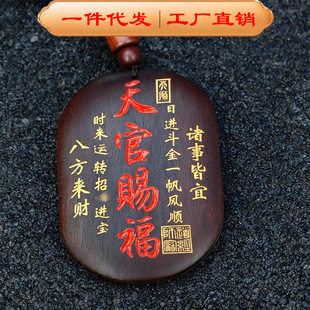 一件代发 | 工厂直销
诸事皆宜
日进斗金一帆风顺
天官賜福
时来运转招 进宝
八方来财